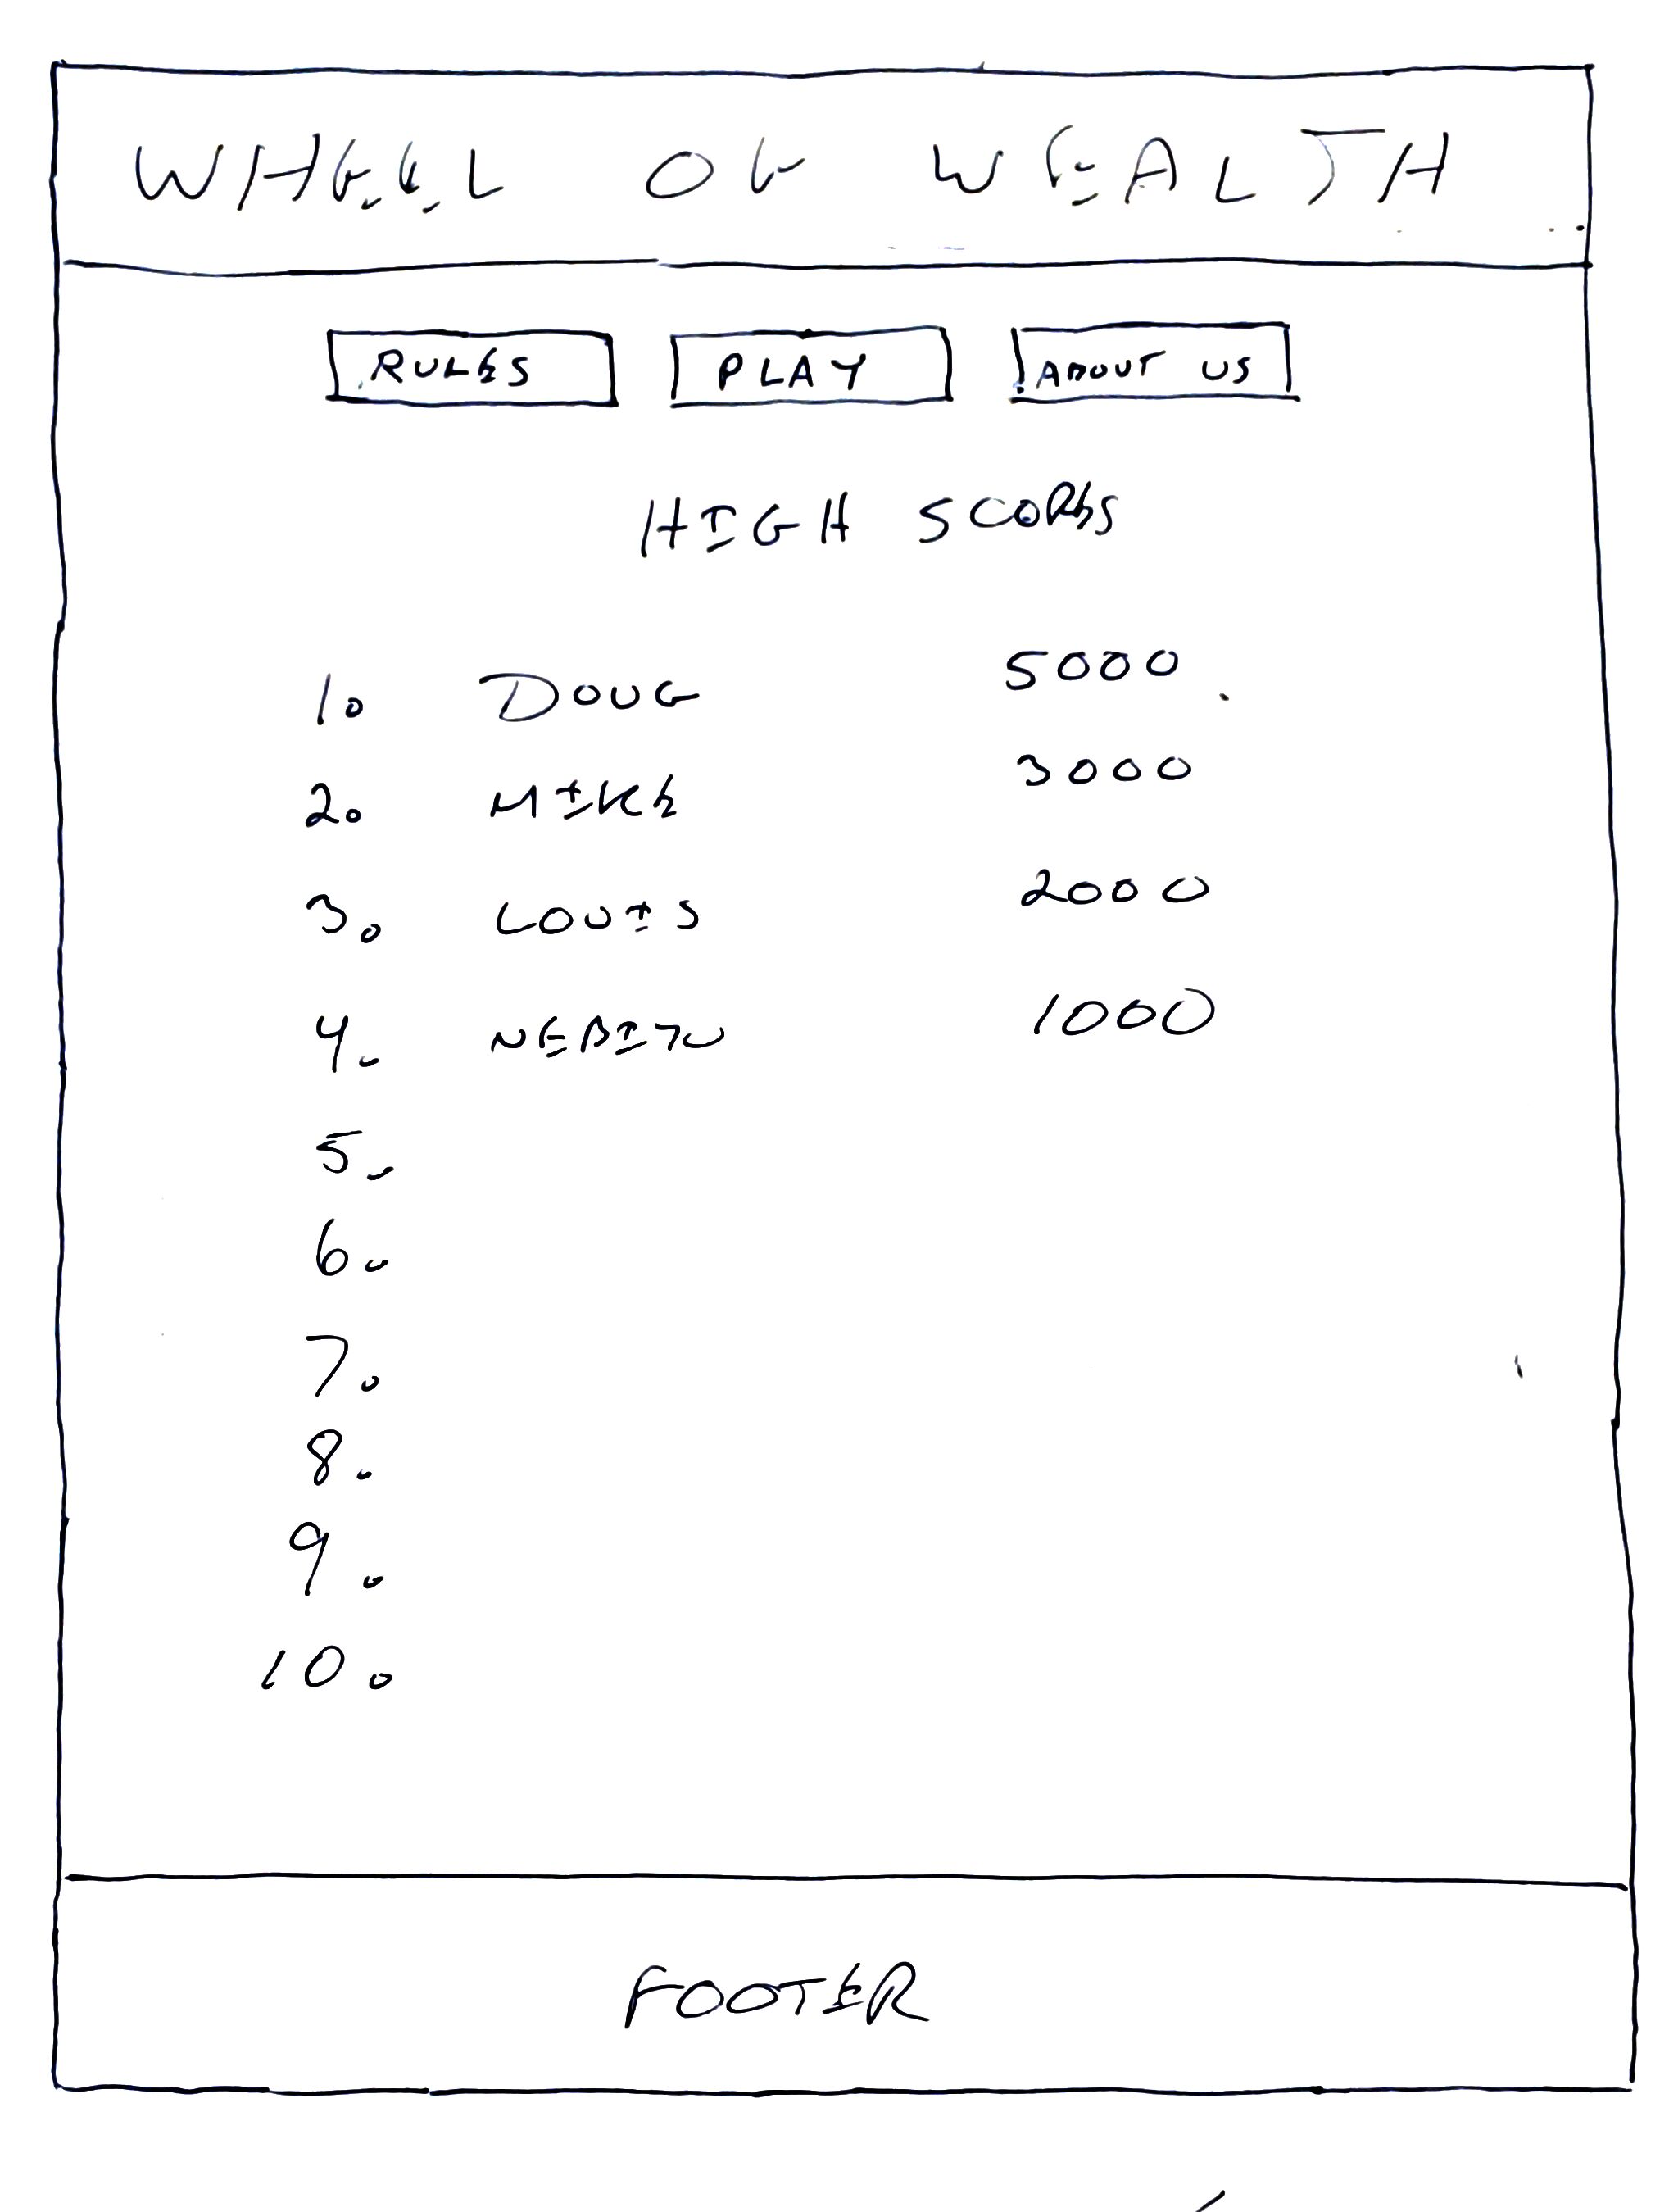 WHEEL OF WEALTH
RULES PLAY ABOUT US
HIGH SCORES
1. DOUG 5000
2. MIKE 3000
3. LOUIS 2000
4. NEBITO 1000
5.
6.
7.
8.
9.
10.
FOOTER